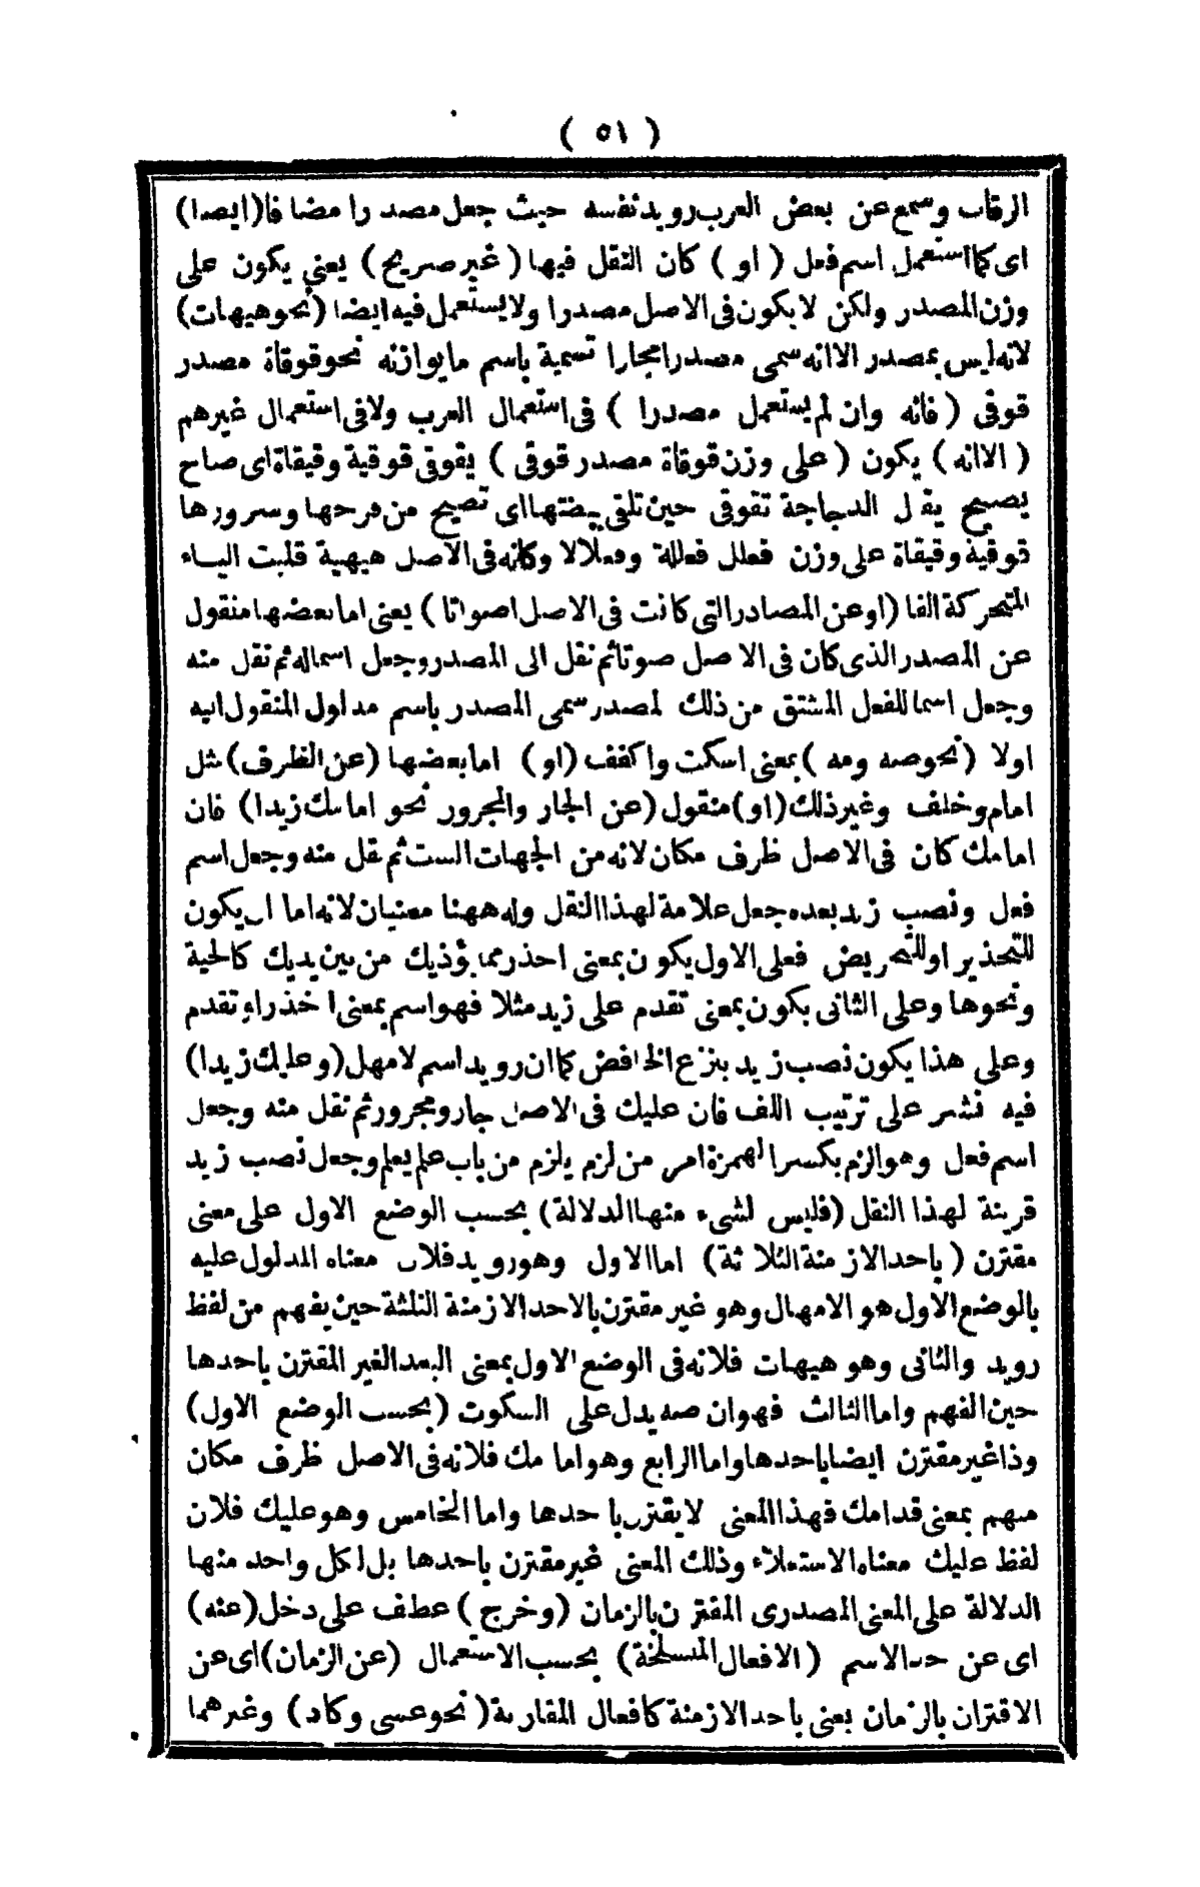 ( ٥١ )
الرقاب وسمع عن بعض العرب رويد نفسه حيث جعل مصدرا مضافا (ايضا)
اى كما استعمل اسم فعل ( او ) كان النقل فيها ( غير صريح ) يعنى يكون على
وزن المصدر ولكن لا يكون فى الاصل مصدرا ولا يستعمل فيه ايضا (نحو هيهات)
لانه ليس بمصدر الا انه سمى مصدرا مجازا تسمية باسم ما يوازنه نحو قوقاة مصدر
قوقى ( فانه وان لم يستعمل مصدرا ) فى استعمال العرب ولا فى استعمال غيرهم
( الا انه ) يكون ( على وزن قوقاة مصدر قوقى ) يقوقى قوقية وقيقاة اى صاح
يصيح يقال الدجاجة تقوقى حين تلقى بيضتها اى تصيح من فرحها وسرورها
قوقية وقيقاة على وزن فعلل فعللة وفعلالا وكانه فى الاصل هيهية قلبت الياء
المتحركة الفا (او عن المصادر التى كانت فى الاصل اصواتا ) يعنى اما بعضها منقول
عن المصدر الذى كان فى الاصل صوتا ثم نقل الى المصدر وجعل اسما له ثم نقل منه
وجعل اسما للفعل المشتق من ذلك المصدر سمى المصدر باسم مدلول المنقول اليه
اولا ( نحو صه ومه ) بمعنى اسكت واكفف (او ) اما بعضها (عن الظرف) مثل
امام وخلف وغير ذلك (او) منقول (عن الجار والمجرور نحو امامك زيدا) فان
امامك كان فى الاصل ظرف مكان لانه من الجهات الست ثم نقل منه وجعل اسم
فعل ونصب زيد بعده جعل علامة لهذا النقل وله ههنا معنيان لانه اما ان يكون
للتحذير او للتحريض فعلى الاول يكون بمعنى احذر مما يؤذيك من بين يديك كالحية
ونحوها وعلى الثانى يكون بمعنى تقدم على زيد مثلا فهو اسم بمعنى احذر او تقدم
وعلى هذا يكون نصب زيد بنزع الخافض كما ان رويد اسم لامهل (وعليك زيدا)
فيه نشر على ترتيب اللف فان عليك فى الاصل جار ومجرور ثم نقل منه وجعل
اسم فعل وهو الزم بكسر الهمزة امر من لزم يلزم من باب علم يعلم وجعل نصب زيد
قرينة لهذا النقل (فليس لشىء منها الدلالة) بحسب الوضع الاول على معنى
مقترن ( باحد الازمنة الثلاثة) اما الاول وهو رويد فلان معناه المدلول عليه
بالوضع الاول هو الامهال وهو غير مقترن بالاحد الازمنة الثلثة حين يفهم من لفظ
رويد والثانى وهو هيهات فلانه فى الوضع الاول بمعنى البعد الغير المقترن باحدها
حين الفهم واما الثالث فهو ان صه يدل على السكوت (بحسب الوضع الاول)
وذا غير مقترن ايضا باحدها واما الرابع وهو امامك فلانه فى الاصل ظرف مكان
مبهم بمعنى قدامك فهذا المعنى لا يقترن باحدها واما الخامس وهو عليك فلان
لفظ عليك معناه الاستعلاء وذلك المعنى غير مقترن باحدها بل لكل واحد منها
الدلالة على المعنى المصدرى المقترن بالزمان (وخرج ) عطف على دخل (عنه)
اى عن حد الاسم (الافعال المنسلخة) بحسب الاستعمال (عن الزمان) اى عن
الاقتران بالزمان يعنى باحد الازمنة كافعال المقاربة ( نحو عسى وكاد ) وغيرهما